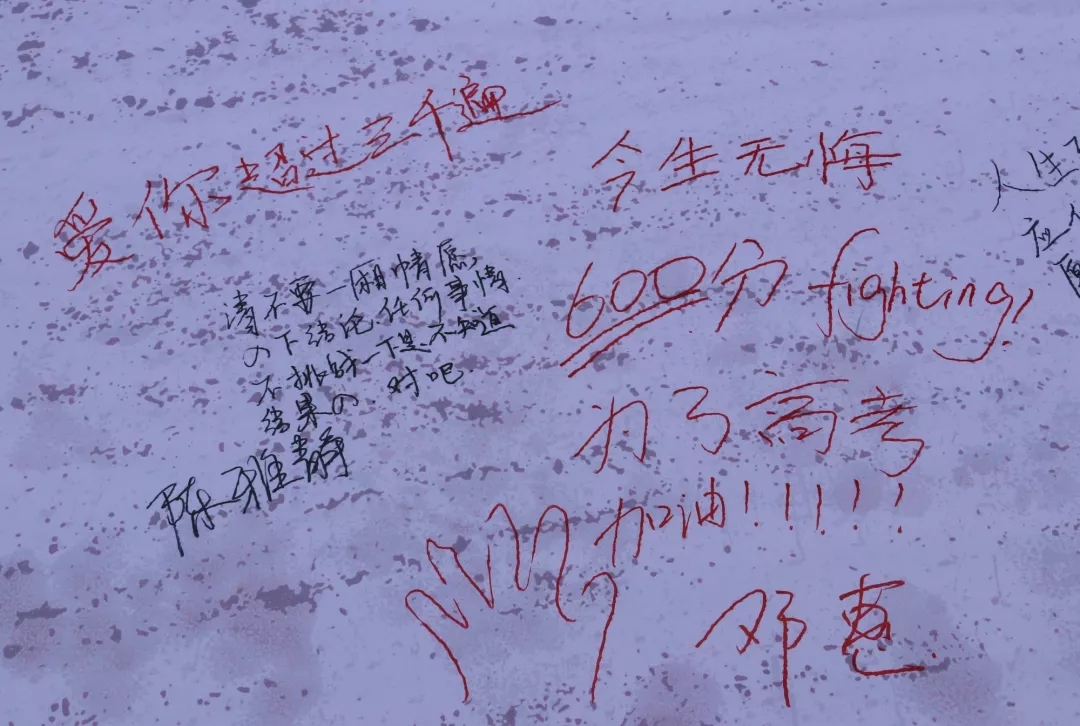 爱你超过三千遍
请不要一厢情愿
の下结论任何事情
不挑战一下是不知道
结果の 对吧
陈雅静
今生无悔
600分 fighting!
为了高考
加油!!!!!
邓惠
人生
应